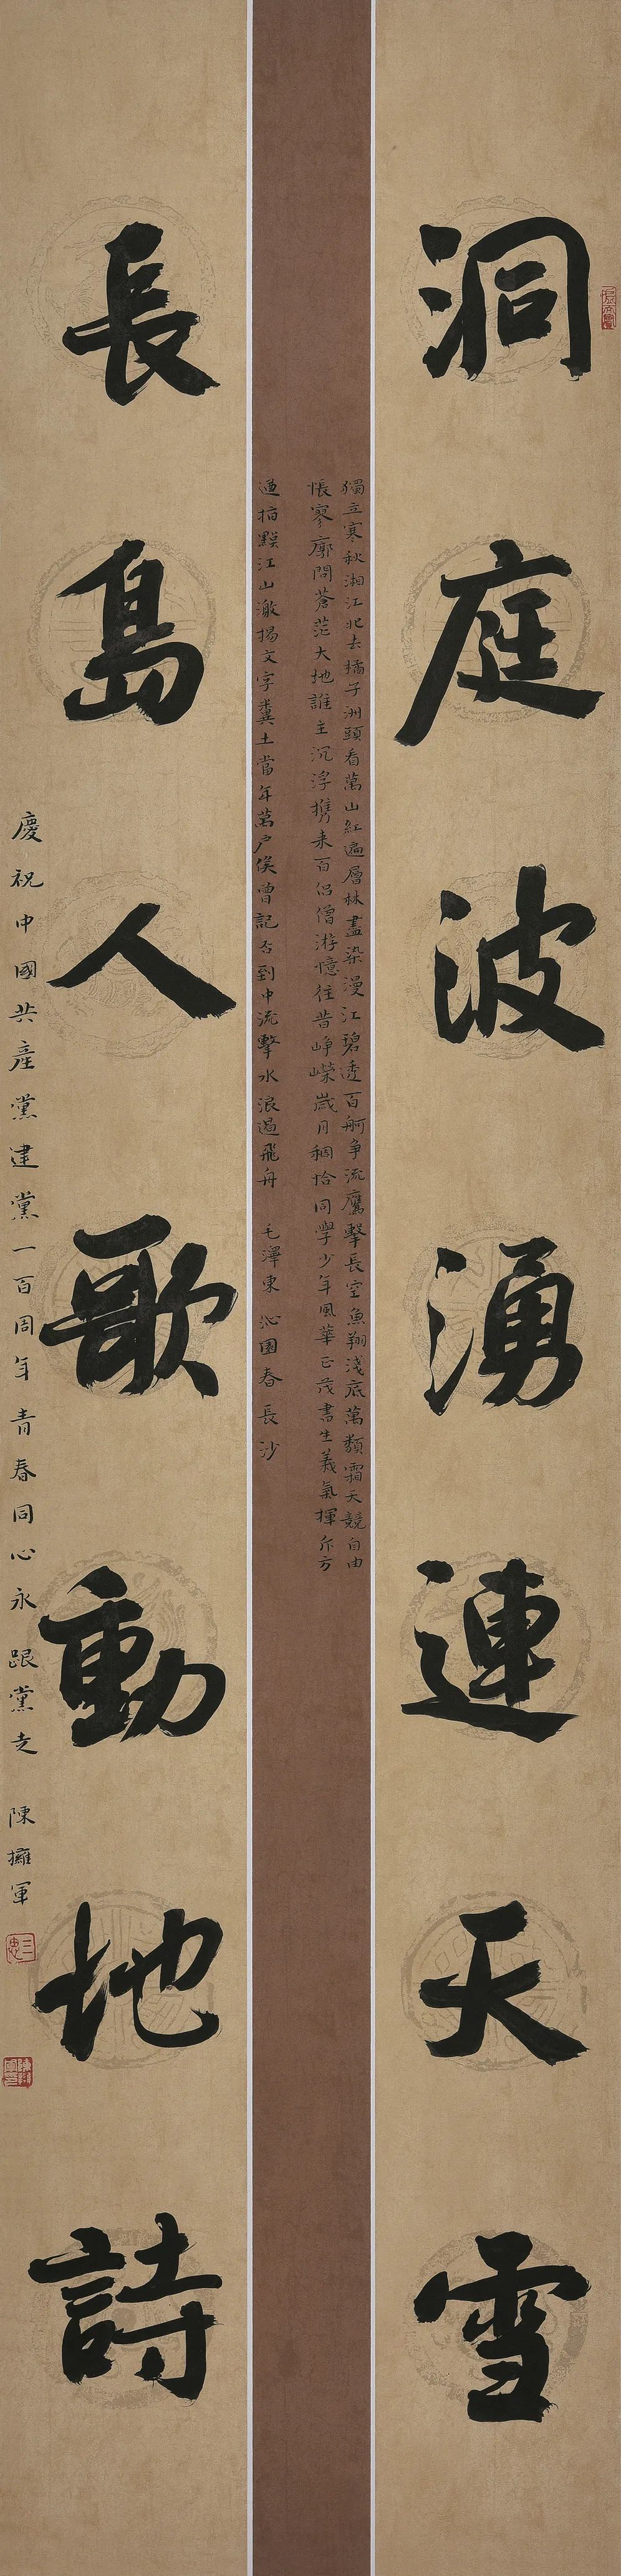 洞庭波湧連天雪
獨立寒秋湘江北去橘子洲頭看萬山紅遍層林盡染漫江碧透百舸爭流鷹擊長空魚翔淺底萬類霜天競自由
悵寥廓問蒼茫大地誰主沉浮攜来百侣僧游憶往昔崢嶸崴月稠恰同學少年風華正茂書生義氣揮斥方
遒指點江山激揚文字糞土當年萬户侯曾記否到中流擊水浪遏飛舟 毛澤東 沁園春 長沙
長島人歌動地詩
慶祝中國共產黨建黨一百周年青春同心永跟黨走 陳擁軍